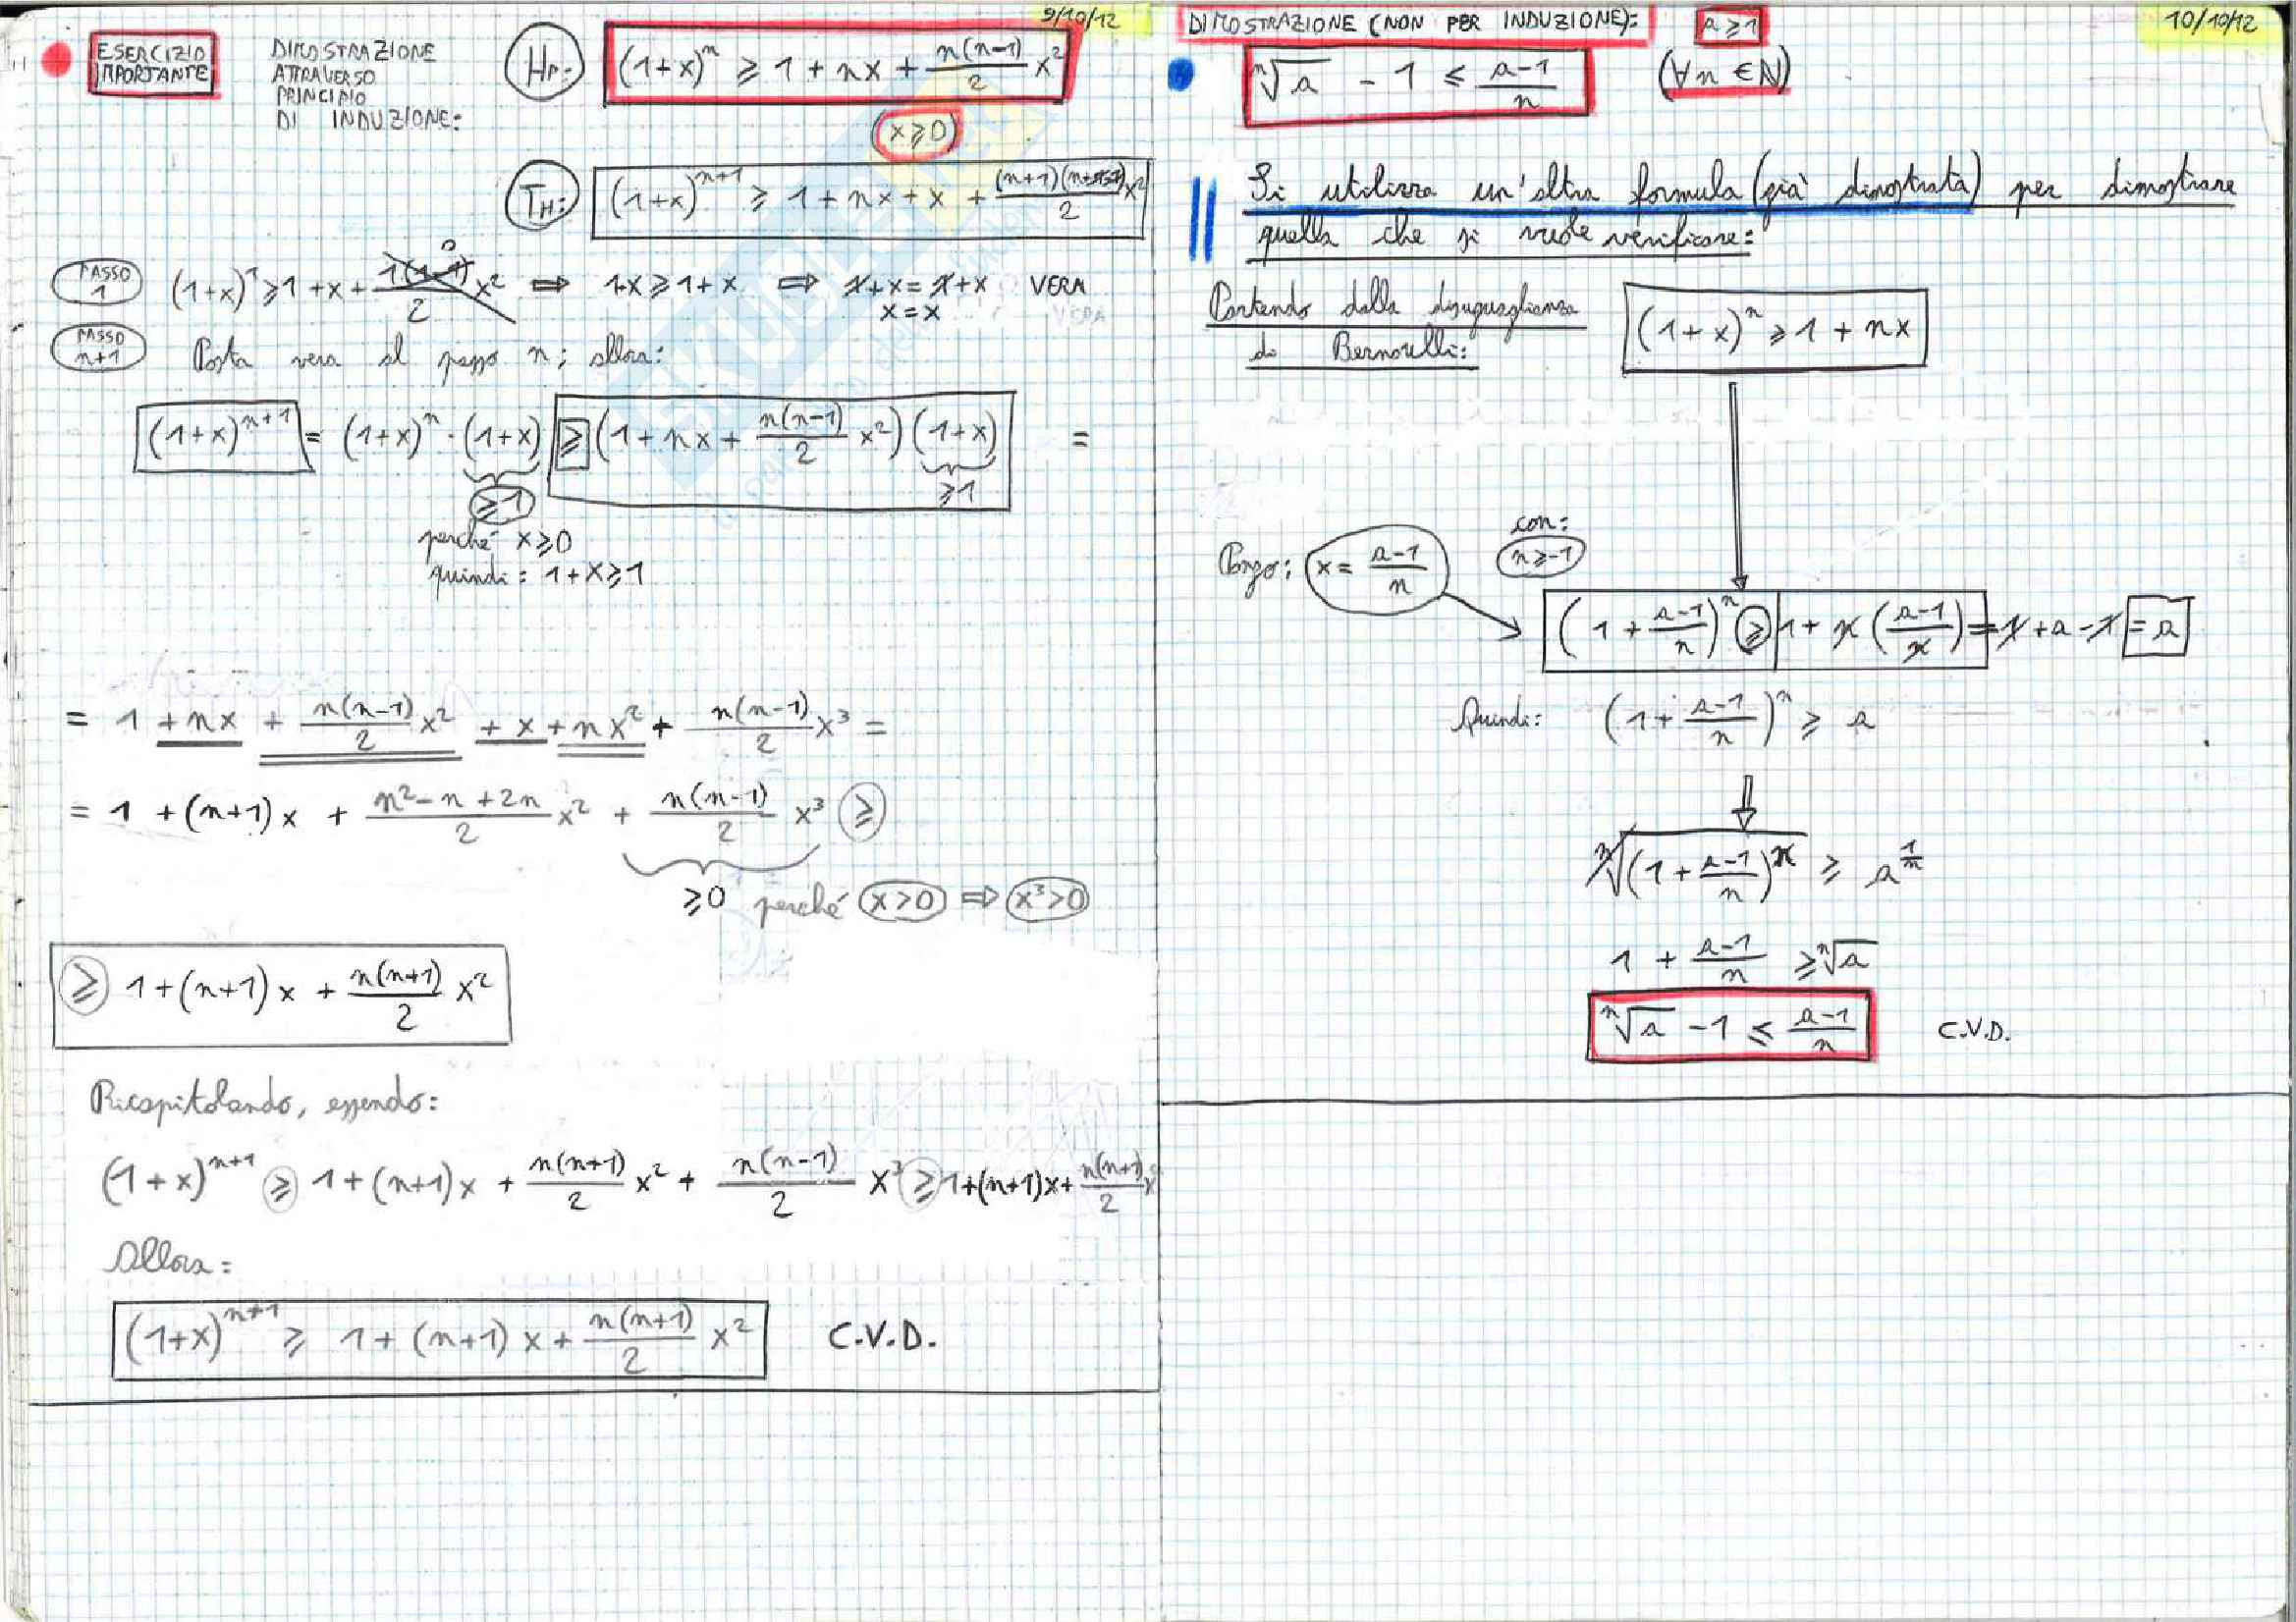 9/10/12
ESERCIZIO IMPORTANTE
DIMOSTRAZIONE
ATTRAVERSO
PRINCIPIO
DI INDUZIONE:
Hp: (1+x)^n ≥ 1 + nx + n(n-1)/2 x²
(x≥0)
TH: (1+x)^(n+1) ≥ 1 + nx + x +
PASSO 1 (1+x)^1 ≥ 1 + x + 1(1-1)/2 x² ⇒ 1+x ≥ 1+x ⇒ 1+x = 1+x VERA
0
x = x
PASSO n+1 Posta vera al passo n; allora:
(1+x)^(n+1) = (1+x)^n · (1+x) ≥ (1 + nx + n(n-1)/2 x²) (1+x) =
≥1 ≥1
perché x≥0
quindi: 1+x≥1
= 1 + nx + n(n-1)/2 x² + x + nx² + n(n-1)/2 x³ =
= 1 + (n+1)x + n²-n+2n/2 x² + n(n-1)/2 x³ ≥
≥0 perché x>0 ⇒ x³>0
≥ 1 + (n+1)x + n(n+1)/2 x²
Ricapitolando, essendo:
(1+x)^(n+1) ≥ 1 + (n+1)x + n(n+1)/2 x² + n(n-1)/2 x³ ≥ 1+(n+1)x + n(n+1)/2 x²
Allora:
(1+x)^(n+1) ≥ 1 + (n+1)x + n(n+1)/2 x² C.V.D.
DIMOSTRAZIONE (NON PER INDUZIONE): a≥1
10/10/12
ⁿ√a - 1 ≤ a-1/n (∀n∈ℕ)
Si utilizza un'altra formula (già dimostrata) per dimostrare
quella che si vuole verificare:
Partendo dalla disuguaglianza
di Bernoulli: (1+x)^n ≥ 1 + nx
con:
Pongo: x = a-1/n n≥-1
(1 + a-1/n)^n ≥ 1 + n(a-1/n) = 1 + a - 1 = a
Quindi: (1 + a-1/n)^n ≥ a
ⁿ√(1 + a-1/n)^n ≥ a^(1/n)
1 + a-1/n ≥ ⁿ√a
ⁿ√a - 1 ≤ a-1/n C.V.D.